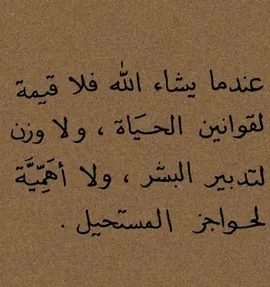 عندما يشاء الله فلا قيمة
لقوانين الحَياة ، ولا وزن
لتدبير البشر ، ولا أهَمِّيَّة
لحواجز المستحيل .